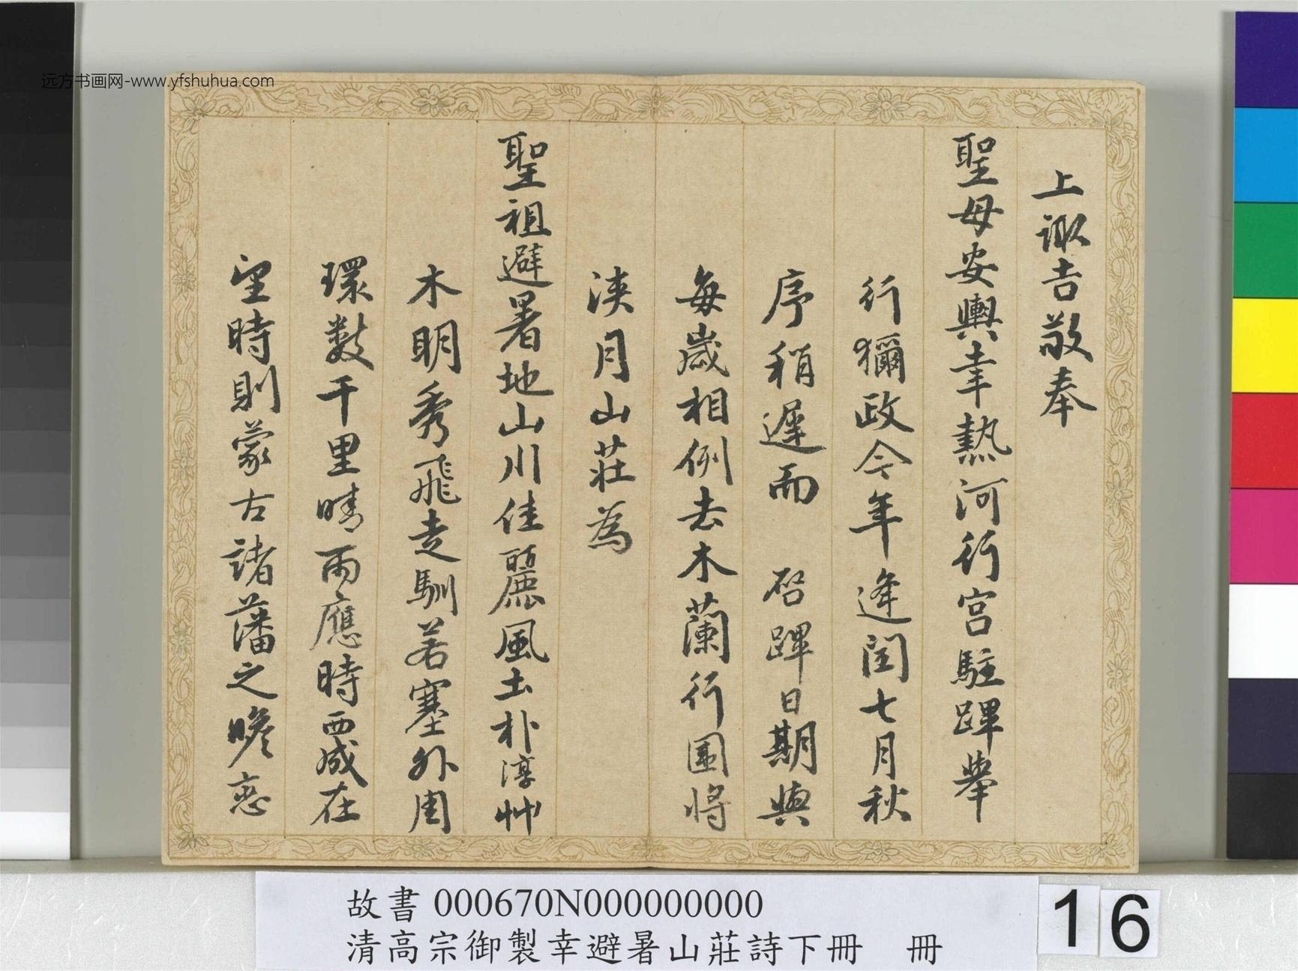 远方书画网-www.yfshuhua.com
上諏吉敬奉
聖母安輿幸熱河行宮駐蹕舉
行獮政今年逢閏七月秋
序稍遲而 啓蹕日期與
每歲相例去木蘭行圍將
浹月山莊為
聖祖避暑地山川佳麗風土朴淳艸
木明秀飛走馴若塞外周
環數千里晴雨應時西成在
望時則蒙古諸藩之瞻恋
故書 000670N000000000
清高宗御製幸避暑山莊詩下冊 冊
16